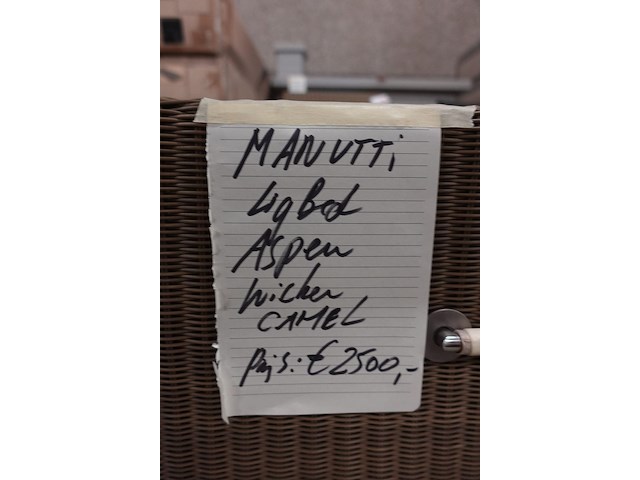 MANUTTi
Ligbed
Aspen
wicker
CAMEL
Prijs: € 2500,-